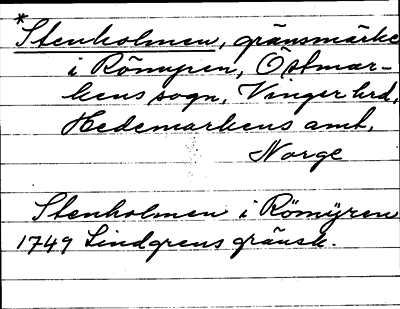 *
Stenholmen, gränsmärke
i Römyren, Östmar-
kens sogn, Vinger hrd,
Hedemarkens amt,
Norge
Stenholmen i Römÿren
1749 Lindgrens gränsk.